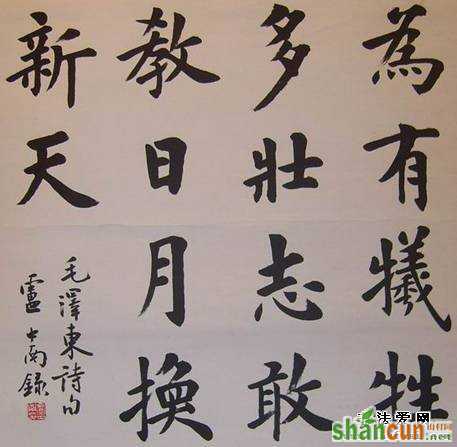 為有犧牲
多壯志敢
教日月換
新天
毛澤東詩句
盧中南錄
法爱网
shancun
.net